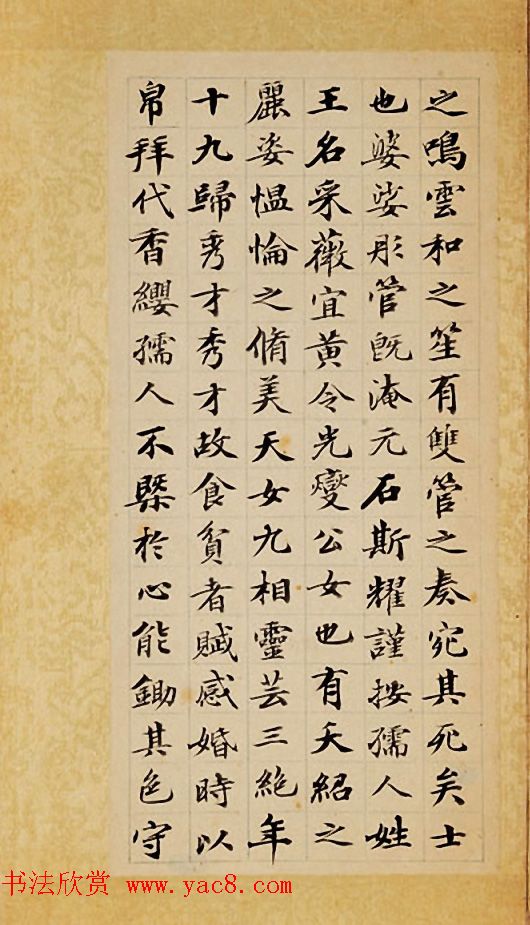 之鳴雲和之笙有雙管之奏宛其死矣士
也婆娑彤管既淹元石斯耀謹按孺人姓
王名采薇宜黃令光燮公女也有夭紹之
麗姿愠惀之脩美天女九相靈芸三絕年
十九歸秀才秀才故食貧者賦感婚時以
帛拜代香纓孺人不槩於心能鋤其色守
书法欣赏 www.yac8.com